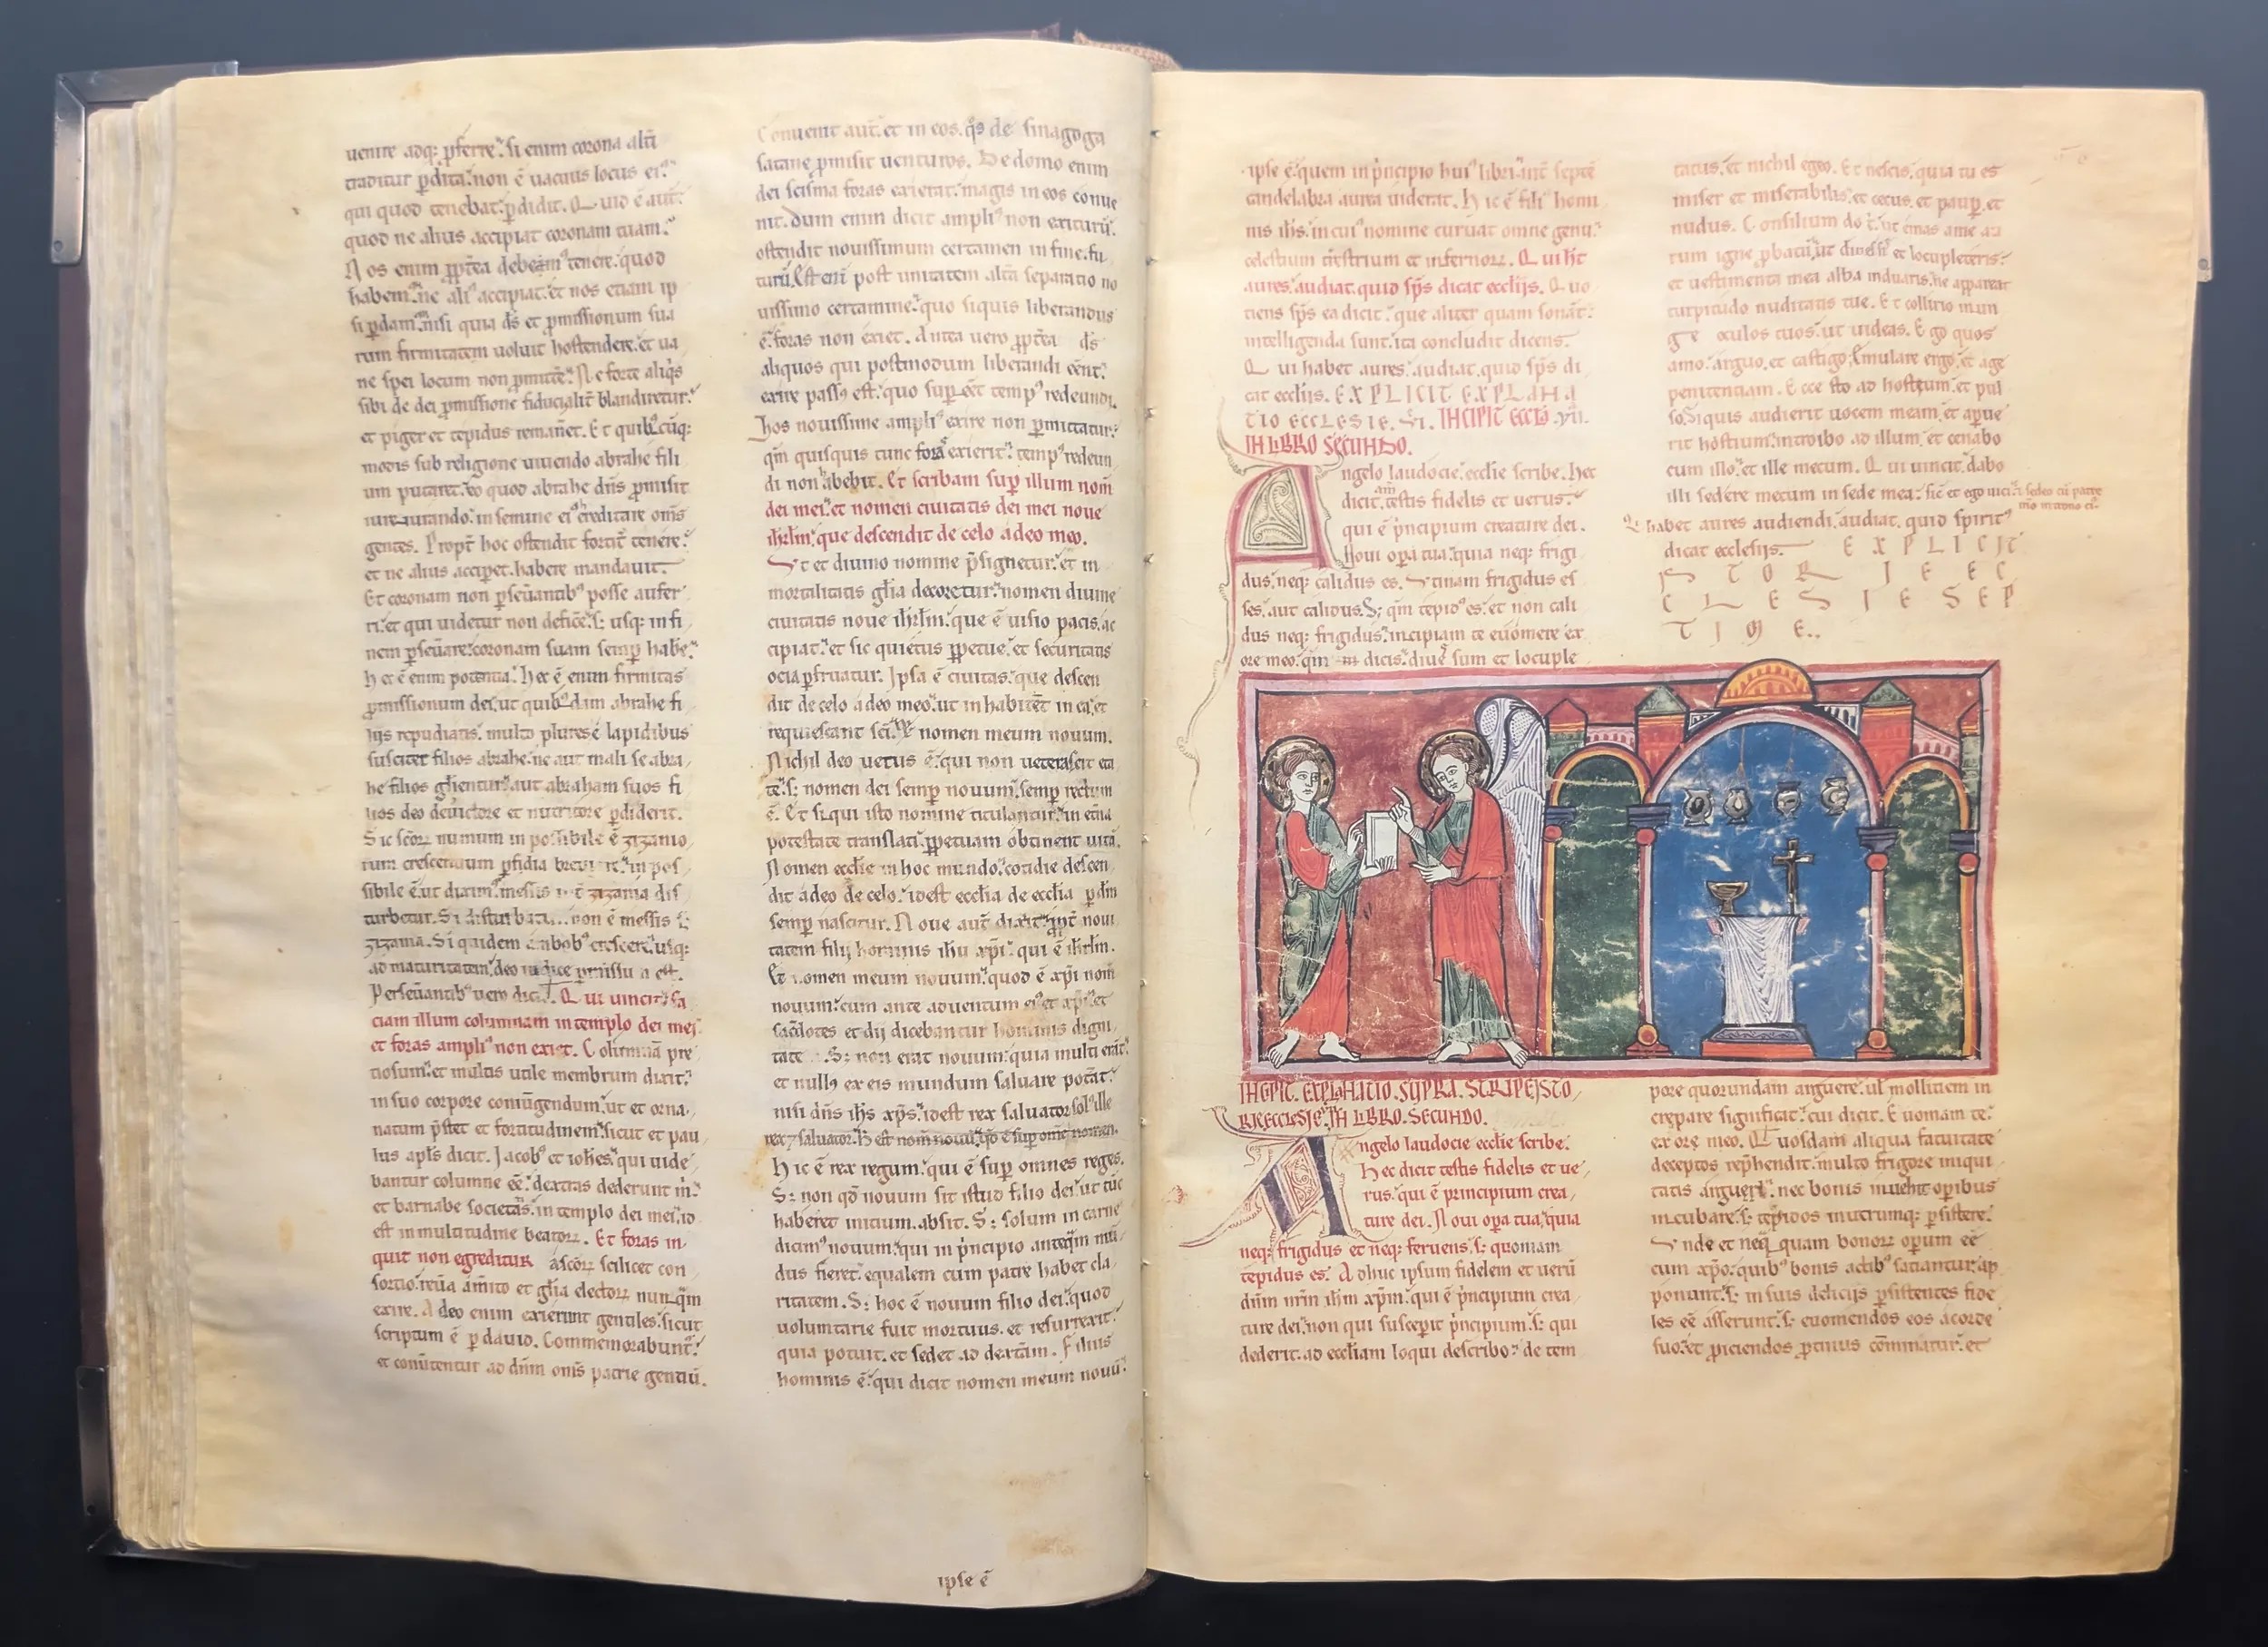 uenire adq; p̲ferre. si enim corona alt̄i
traditur p̲dita. non ē uacuus locus ei⁹.
qui quod tenebat. p̲didit. Quid ē aut̄.
quod ne alius accipiat coronam tuam.
Nos enim p̲p̄tea debem⁹ tenere. quod
habem⁹. ne ali⁹ accipiat. et nos etiam ip
si p̲dam⁹. nisi quia d̄s et p̲missionum sua
rum firmitatem uoluit hostendere. et ua
ne spei locum non p̲mitt̄e. Ne forte aliq̄s
sibi de dei p̲missione fiducialit̄ blandiretur.
et piger et tepidus remanet. Et quib⁹cūq;
modis sub religione uiuendo abrahe fili
um putaret. eo quod abrahe dn̄s p̲misit
iureiurando. in semine ei⁹ creditare om̄s
gentes. Propt̄ hoc ostendit fortit̄ tenere.
et ne alius accip̲et. habere mandauit.
Et coronam non p̲seūantib⁹ posse aufer
ri. et qui uidetur non defic̄e. s; usq; in fi
nem p̲seūare. coronam suam semp̲ habe.
hec ē enim potentia. Hec ē enim firmitas
p̲missionum dei. ut quib⁹dam abrahe fi
lijs repudiatis. multo plures e lapidibus
suscitet filios abrahe. ne aut mali se abra
he filios glientur. aut abraham suos fi
lios deo deuictore et nutritore p̲diderit.
Sic sc̄oꝝ numum in possibile ē zizanio
rum crescentium p̲fidia in pos
sibile ē. ut diximus messis zizania dis
turbetur. Si disturbatur non ē messis s;
zizania. Siquidem ambob⁹ crescere usq;
ad maturitatem deo iudice p̲missu est.
Perseūantib⁹ uero dicit. Qui uincit. fa
ciam illum columnam in templo dei mei
et foras ampli⁹ non exiet. Columnā pre
tiosum. et multis utile membrum dixit.
in suo corpore coniungendum. ut et orna
natum p̄stet et fortitudinem. sicut et pau
lus apl̄s dicit. Jacob⁹ et ioh̄es. qui uide
bantur columne eē. dextras dederunt m̄.
et barnabe societās. in templo dei mei. id
est in multitudine beatoꝝ. Et foras in
quit non egreditur a sc̄oꝝ scilicet con
sortio. reūa am̄ito et glia electoꝝ nunq̄m
exire. A deo enim exierunt gentiles. sicut
scriptum ē p̲ dauid. Commemorabunt.
et conūtentur ad dn̄m om̄s patrie gentiū.
Conuenit aut̄. et in eos. q̄s de sinagoga
satane p̲misit uenturos. De domo enim
dei scisma foras exierat. magis in eos conue
nit. Dum enim dicit ampli⁹ non exiturū.
ostendit nouissimum certamen in fine. fu
turū. Est eni post unitatem alt̄a separatio no
uissimo certamine. quo siquis liberandus
ē. foras non exiet. Antea uero p̲p̄tea d̄s
aliquos qui postmodum liberandi cēnt.
exire pass⁹ est. quo sup̲eēt temp⁹ redeundi.
hos nouissime ampli⁹ exire non p̲mittatur.
q̄m quisquis tunc foras exierit. temp⁹ redeun
di non habebit. Et scribam sup̲ illum nom̄
dei mei. et nomen ciuitatis dei mei noue
ihrl̄m. que descendit de celo a deo meo.
Ut et diuino nomine p̄signetur. et in
mortalitatis gl̄ia decoretur. nomen diuine
ciuitatis noue ihrl̄m. que ē uisio pacis. ac
cipiat. et sic quietus p̲petue. et securitatis
ocia p̲fruatur. Ipsa ē ciuitas. que descen
dit de celo a deo meo. ut inhabitēt in ea. et
requiescant sc̄i. nomen meum nouum.
Nichil deo uetus ē. qui non ueterascit eta
te. s; nomen dei semp̲ nouum. semp̲ rectum
ē. Et siqui isto nomine titulantur. in et̄na
potestate translati. p̲petuam obtinent uitā.
Nomen ecclie in hoc mundo. cotidie descen
dit a deo de celo. idest ecclia de ecclia p̲ dn̄m
semp̲ nascitur. Noue aut̄ dixit. p̲p̄t noui
tatem filij hominis ihu xp̄i. qui ē ihrl̄m.
Et nomen meum nouum. quod ē xp̄i nom̄
nouum. cum ante aduentum ei⁹ et xp̄i. et
sac̄dotes et dij dicebantur hominis digni
tate S; non erat nouum. quia multi erāt.
et null⁹ ex eis mundum saluare potāt.
nisi dn̄s ih̄s xp̄s. idest rex saluator. sol⁹ ille
rex ⁊ saluator. H est nom̄ nouū. q̄d ē sup̲ om̄e nomen.
Hic ē rex regum. qui ē sup̲ omnes reges.
S; non q̄d nouum sit istud filio dei. ut tūc
haberet initium. absit. S; solum in carne
dicim⁹ nouum. qui in p̄ncipio anteq̄m mū
dus fieret. equalem cum patre habet cla
ritatem. S; hoc ē nouum filio dei. quod
uoluntarie fuit mortuus. et resurrexit.
quia potuit. et sedet ad dextām. Filius
hominis ē. qui dicit nomen meum nouū.
ipse ē
ipse ē. quem in p̄ncipio hui⁹ libri. int̄ septē
candelabra aurea uiderat. Hic ē fili⁹ homi
nis ih̄s. in cui⁹ nomine curuat omne genu.
celestium t̄restrium et infernoꝝ. Qui h̄t
aures. audiat. quid sp̄s dicat ecclijs. Quo
tiens sp̄s ea dicit. que aliter quam sonāt.
intelligenda sunt. ita concludit dicens.
Qui habet aures. audiat. quid sp̄s di
cat ecclijs. EXPLICIT EXPLANA
TIO ECCLESIE. VI. INCIPIT ECCLĀ .VII.
IN LIBRO SECUNDO.
Angelo laudocie. ecclie scribe. Hec
dicit. am̄ testis fidelis et uerus.
qui ē p̄ncipium creature dei.
Noui op̲a tua. quia neq; frigi
dus. neq; calidus es. Utinam frigidus es
ses. aut calidus. S; q̄m tepid⁹ es. et non cali
dus neq; frigidus. incipiam te euomere ex
ore meo. q̄m dicis. diues sum et locuple
tatus. et nichil egeo. Et nescis. quia tu es
miser et miserabilis. et cecus. et paup̲. et
nudus. Consilium do t̄. ut emas a me au
rum igne p̲batū. ut diues fi et locupleteris.
et uestimenta mea alba induaris. ne appareat
turpitudo nuditatis tue. Et collirio inun
ge oculos tuos. ut uideas. Ego quos
amo. arguo. et castigo. Emulare ergo. et age
penitenciam. Ecce sto ad hostium. et pul
so. Siquis audierit uocem meam. et apue
rit hostium. introibo ad illum. et cenabo
cum illo. et ille mecum. Qui uincit. dabo
illi sedere mecum in sede mea. sic̄ et ego uici. ⁊ sedeo cū patre
mō in trono ei⁹.
Q habet aures audiendi. audiat. quid spirit⁹
dicat ecclesijs. EXPLICIT
STORIE EC
CLESIE SEP
TIME.
INCIPIT. EXPLANATIO. SUPRA. SCRIPE ISTO
RIE ECCLESIE. IN LIBRO. SECUNDO.
Angelo laudocie ecclie scribe.
Hec dicit testis fidelis et ue
rus. qui ē principium crea
ture dei. Noui op̲a tua. quia
neq; frigidus et neq; feruens. s; quoniam
tepidus es. Adhuc ipsum fidelem et uerū
dn̄m nr̄m ih̄m xp̄m. qui ē p̄ncipium crea
ture dei. non qui suscepit p̄ncipium. s; qui
dederit. ad eccliam loqui describo. de tem
pore quorundam anguere. ul̄ mollitiem in
crepare significat. cui dicit. Euomam te.
ex ore meo. Quosdam aliqua facuitate
deceptos rep̄hendit. multo frigore iniqui
tatis anguere. nec bonis inuehit op̲ibus
incubare. s; tepidos in utrumq; p̲sistere.
Unde et neq̄quam bonoꝝ op̲um eē
cum xp̄o. quib⁹ bonis actib⁹ satiantur. ap
ponunt. s; in suis delicijs p̲sistentes fide
les eē asserunt. s; euomendos eos a corde
suo. et p̲iciendos p̲tinus com̄inatur. et